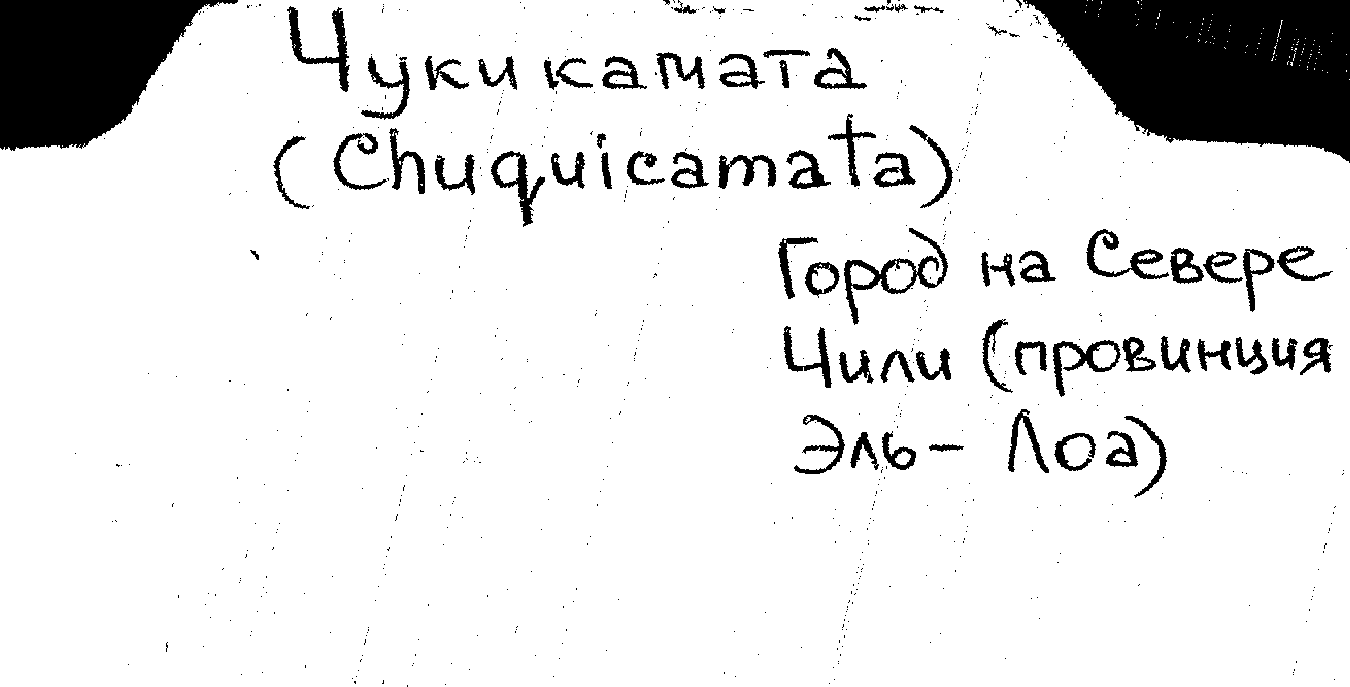 Чукикамата
(Chuquicamata)
Город на Севере
Чили (провинция
Эль- Лоа)